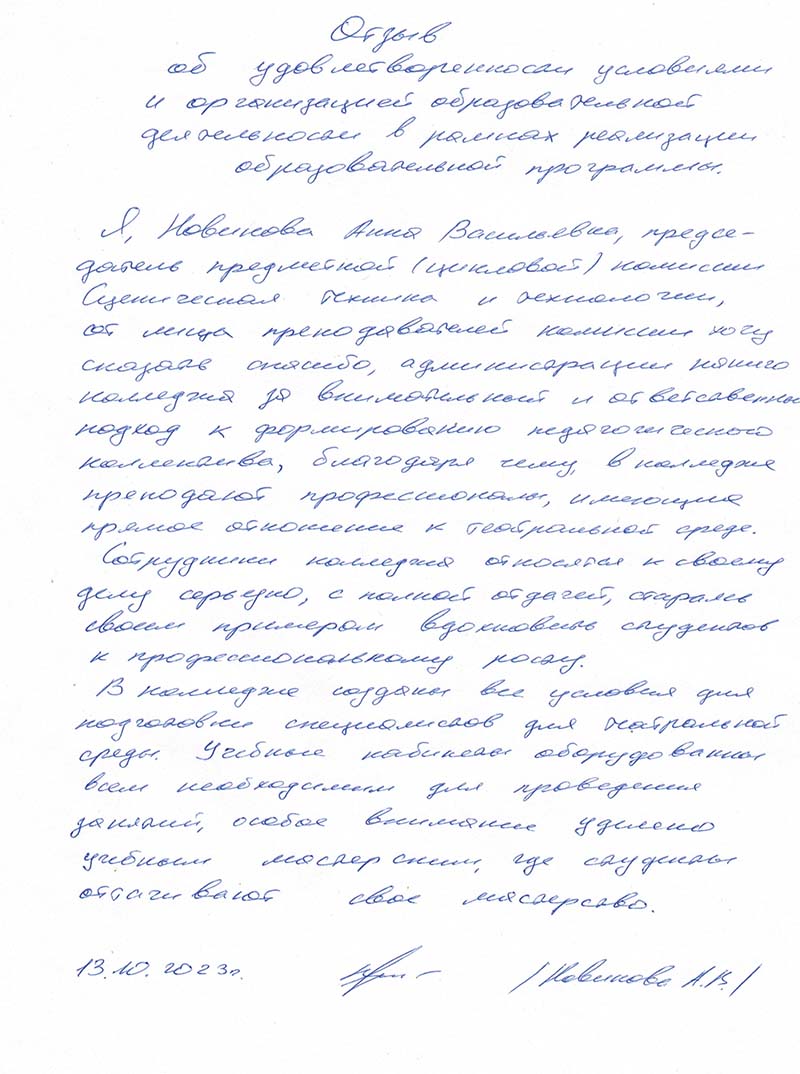 Отзыв
об удовлетворенности условиями
и организацией образовательной
деятельности в рамках реализации
образовательной программы.
Я, Новикова Анна Васильевна, предсе-
датель предметной (цикловой) комиссии
Сценическая техника и технологии,
от лица преподавателей комиссии хочу
сказать спасибо, администрации нашего
колледжа за внимательный и ответственный
подход к формированию педагогического
коллектива, благодаря чему, в колледже
преподают профессионалы, имеющие
прямое отношение к театральной среде.
Сотрудники колледжа относятся к своему
делу серьезно, с полной отдачей, стараясь
своим примером вдохновить студентов
к профессиональному росту.
В колледже созданы все условия для
подготовки специалистов для театральной
среды. Учебные кабинеты оборудованы
всем необходимым для проведения
занятий, особое внимание уделено
учебным мастерским, где студенты
оттачивают свое мастерство.
13.10.2023г. /Новикова А.В./